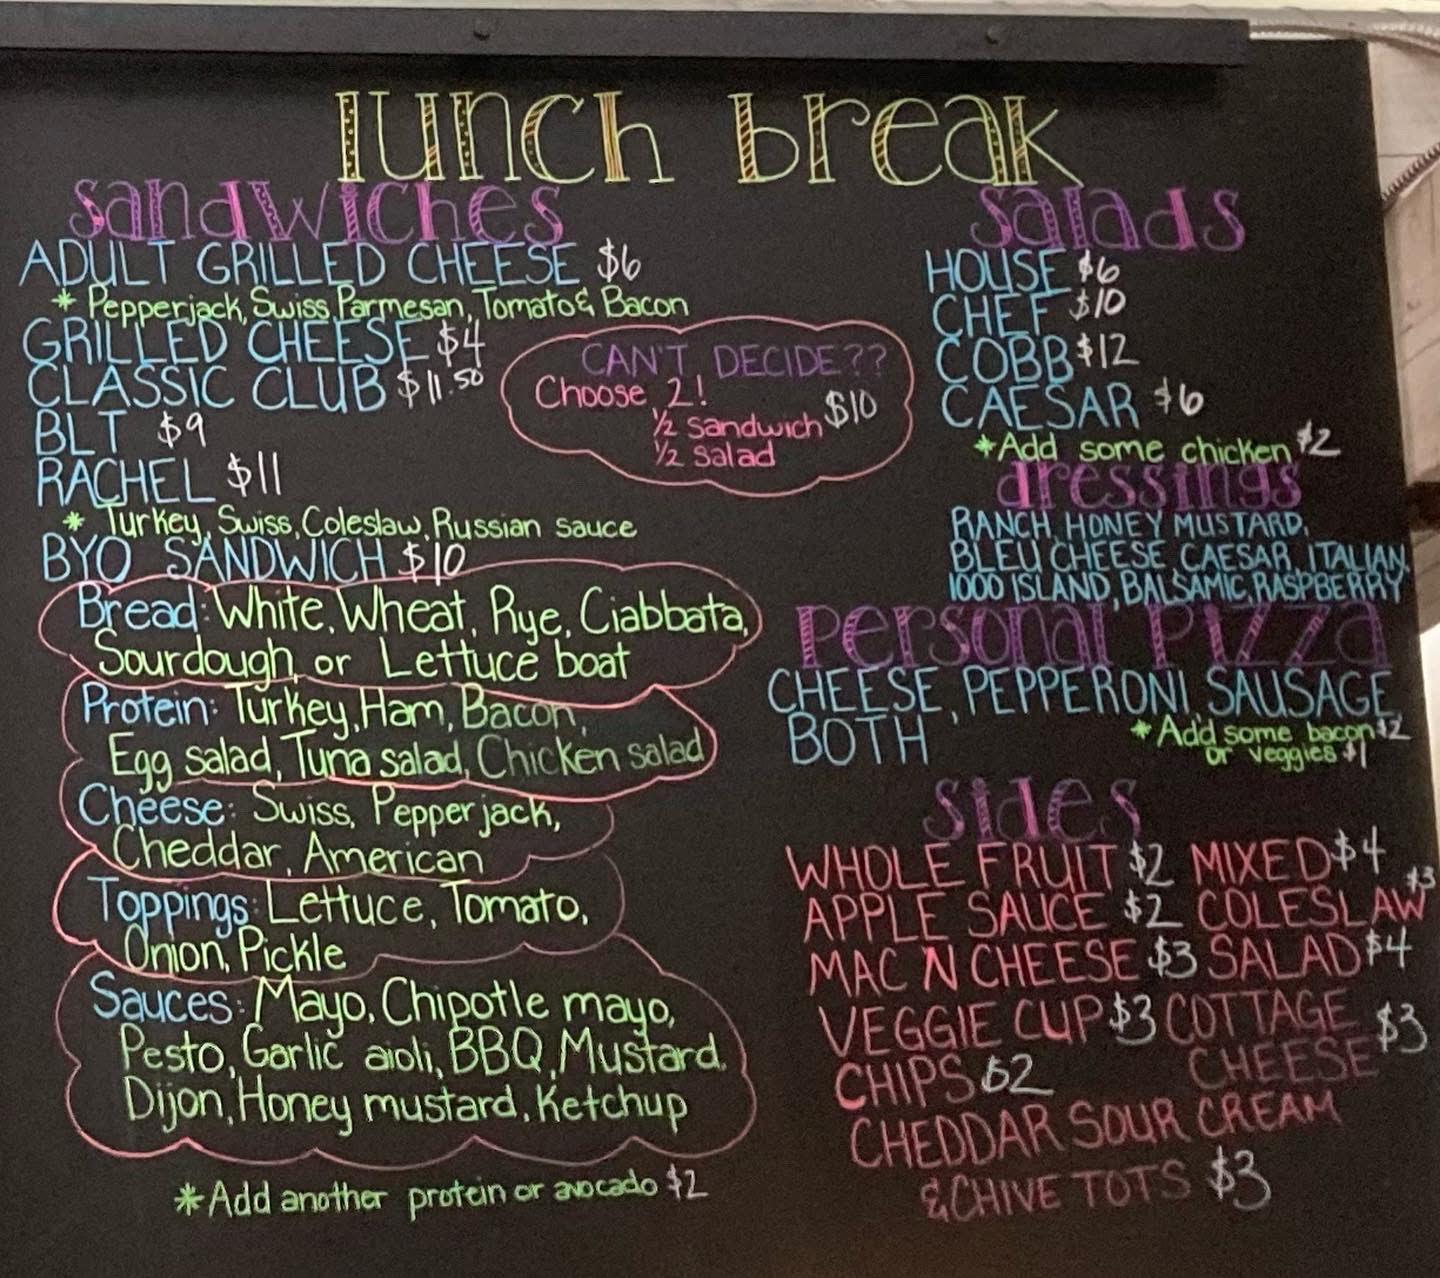 lunch break
sandwiches
ADULT GRILLED CHEESE $6
* Pepperjack, Swiss, Parmesan, Tomato & Bacon
GRILLED CHEESE $4
CLASSIC CLUB $11.50
BLT $9
RACHEL $11
* Turkey, Swiss, Coleslaw, Russian sauce
BYO SANDWICH $10
Bread: White, Wheat, Rye, Ciabbata,
Sourdough, or Lettuce boat
Protein: Turkey, Ham, Bacon,
Egg salad, Tuna salad, Chicken salad
Cheese: Swiss, Pepper jack,
Cheddar, American
Toppings: Lettuce, Tomato,
Onion, Pickle
Sauces: Mayo, Chipotle mayo,
Pesto, Garlic aioli, BBQ, Mustard,
Dijon, Honey mustard, Ketchup
*Add another protein or avocado $2
CAN'T DECIDE??
Choose 2!
1/2 sandwich $10
1/2 salad
salads
HOUSE $6
CHEF $10
COBB $12
CAESAR $6
*Add some chicken $2
dressings
RANCH, HONEY MUSTARD,
BLEU CHEESE, CAESAR, ITALIAN,
1000 ISLAND, BALSAMIC, RASPBERRY
personal pizza
CHEESE, PEPPERONI, SAUSAGE,
BOTH *Add some bacon $2
or veggies $1
sides
WHOLE FRUIT $2 MIXED $4
APPLE SAUCE $2 COLESLAW $3
MAC N CHEESE $3 SALAD $4
VEGGIE CUP $3 COTTAGE
CHIPS $2 CHEESE $3
CHEDDAR SOUR CREAM
& CHIVE TOTS $3